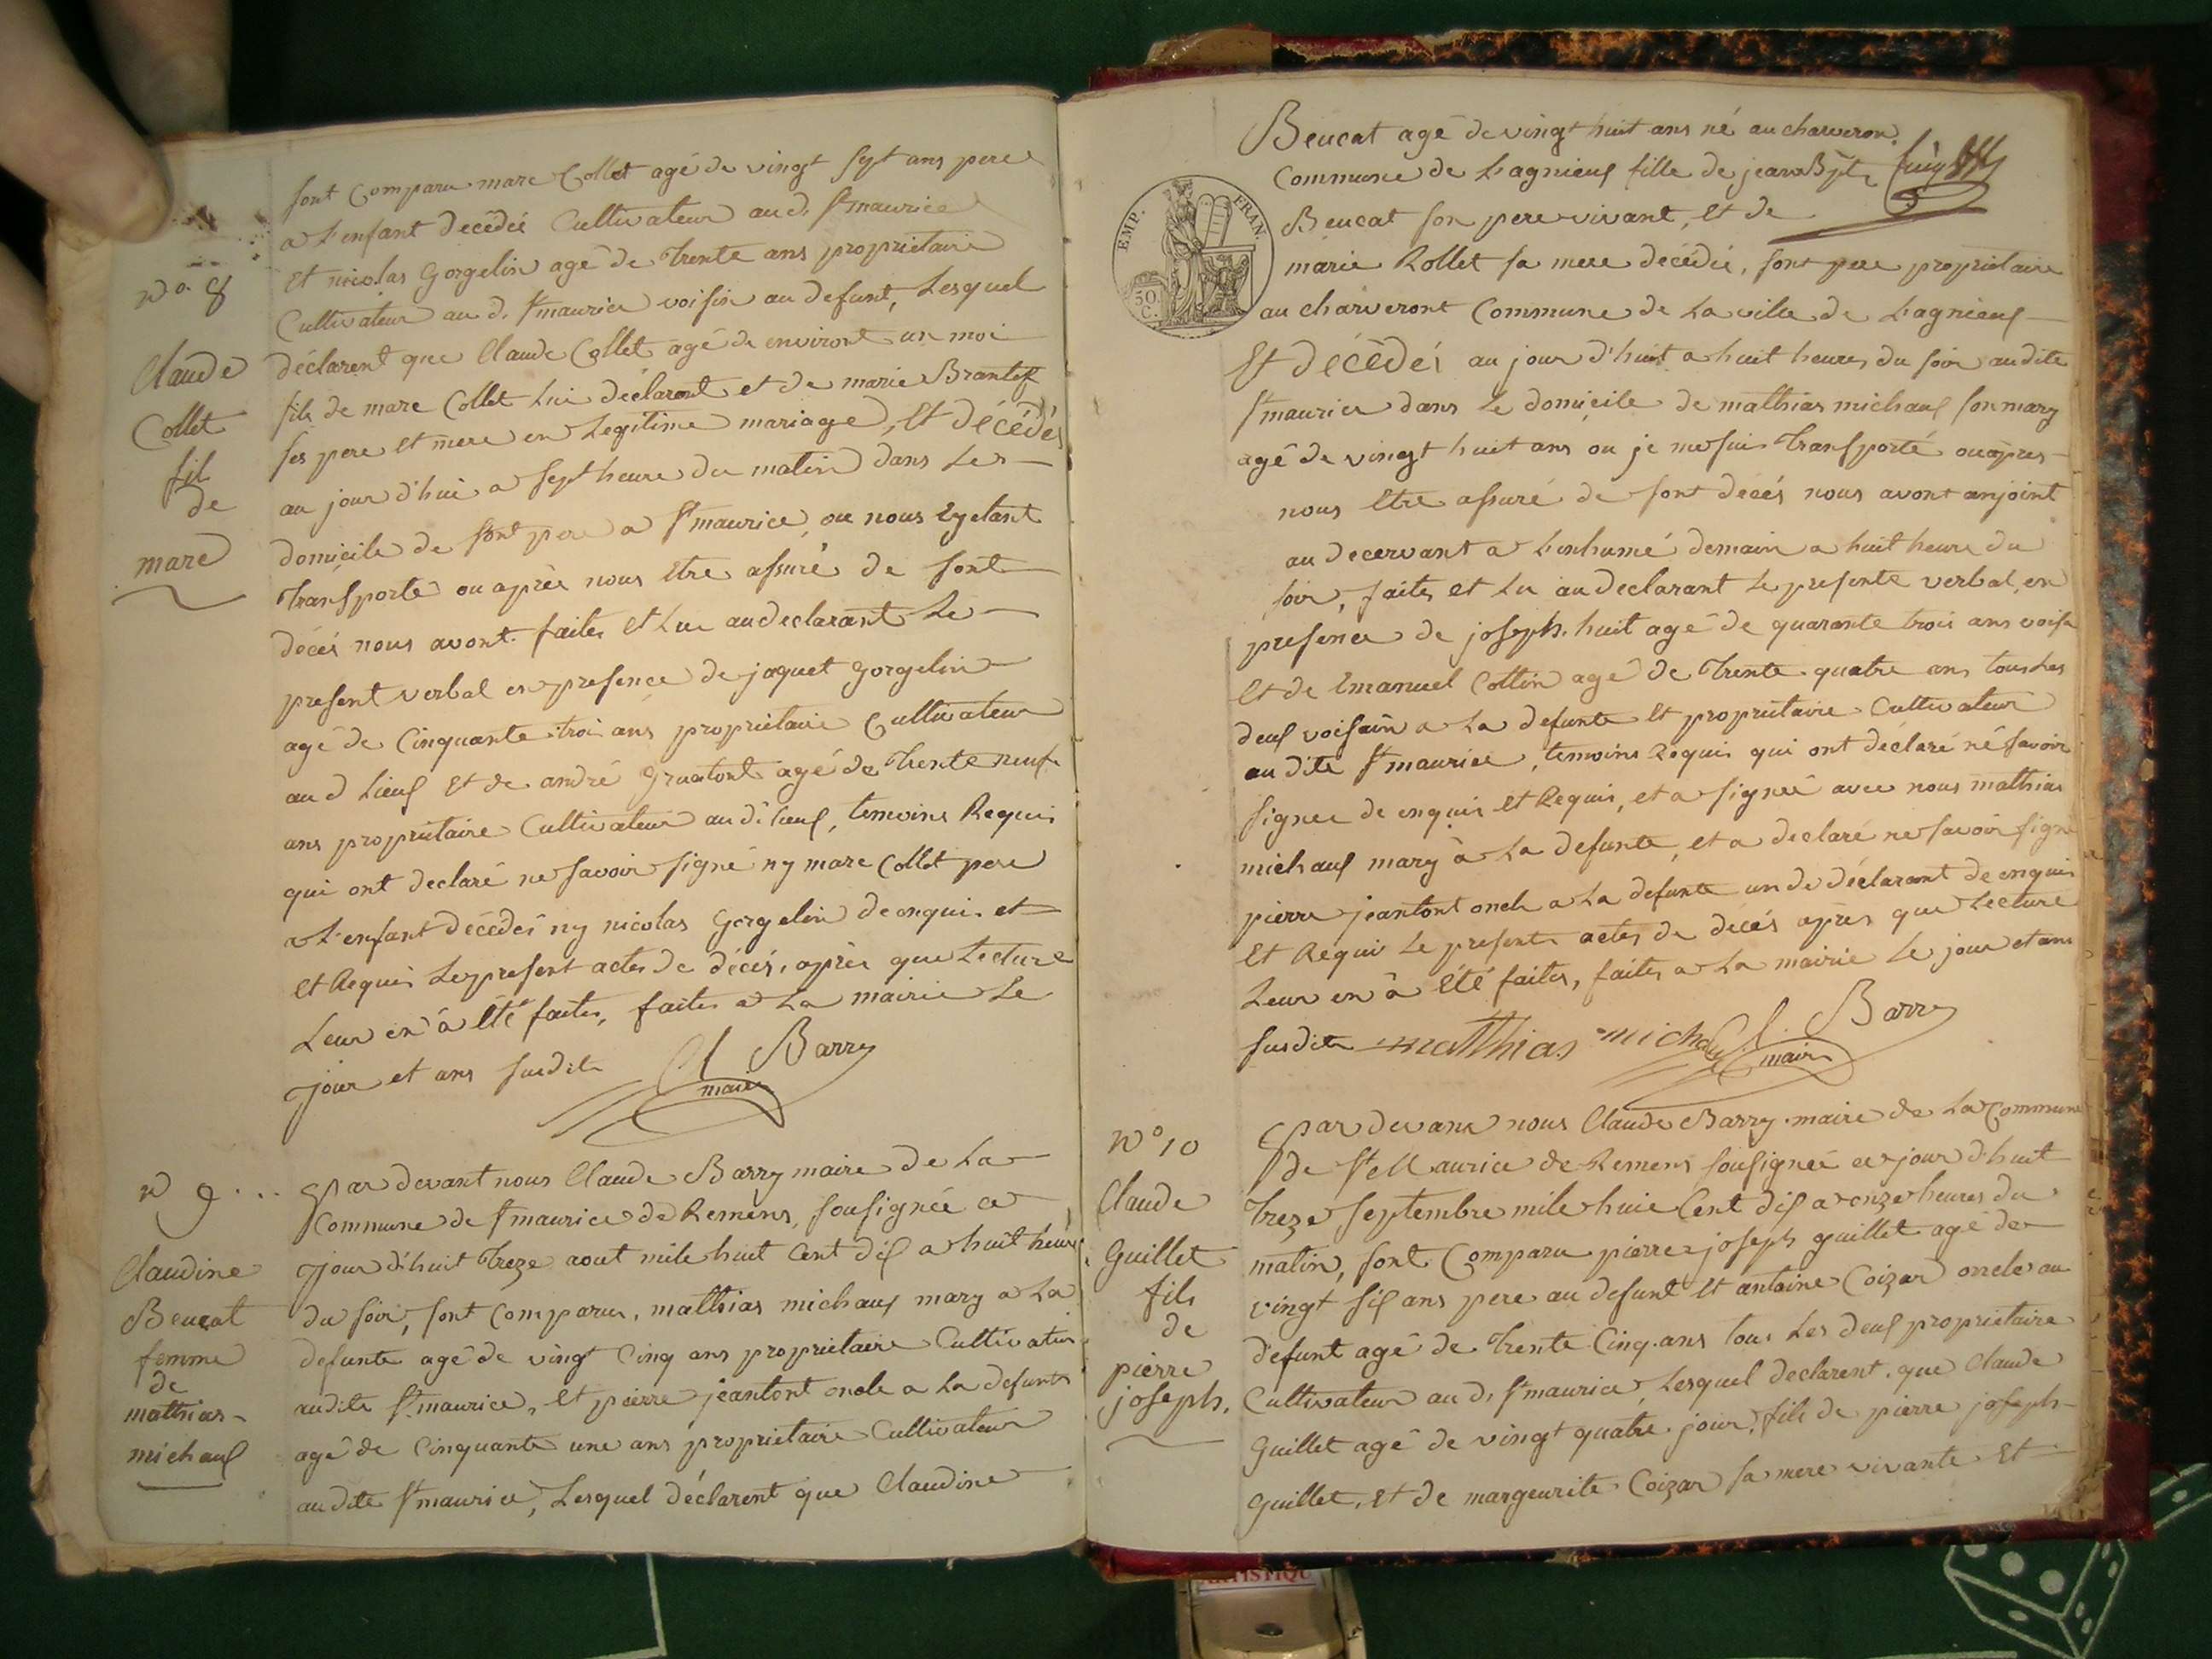 font Comparu marc Collet agé de vingt sept ans pere
a L'enfant décédéé Cultivateur aud. St maurice
Et nicolas Gorgelin agé de Trente ans proprietaire
Cultivateur au d. St maurice voisin au defunt, Lesquel
N° 8
Claude
Collet
fil
de
marc
déclarent que Claude Collet agé de environt un moi
fils de marc Collet Lui déclarant et de marie
ses pere et mere en Legitime mariage, Et décédés
au jour d'hui a sept heure du matin dans Le
domicile de font pere a St maurice, ou nous
Transporté ou après nous Etre assuré de font
décés nous avont faites et Lu au declarant Le
present verbal en presence de jaquet Gorgelin
agé de Cinquante troi ans proprietaire Cultivateur
au d Lieux Et de andré agé de Trente neuf
ans proprietaire Cultivateur au di Lieux, temoins Requis
qui ont declaré ne savoir signé ny marc Collet pere
a L'enfant décédéi ny nicolas Gorgelin de enquis et
et Requis Le present actes de décés, après que Lecture
Leur en à Eté faites, faites a La mairie Le
jour et ans susdite
Cl Barry
maire
N 9
Claudine
Beucat
femme
de
mathias
michaux
Par devant nous Claude Barry maire de La
Commune de St maurice de Remens, sousignéé ce
jour d'huit Treze aout mile huit Cent dix a huit heure
du soir, sont Comparus, mathias michaux mary a La
defunte agé de vingt Cinq ans proprietaire Cultivateur
audite St maurice, Et pierre jeantont oncle a La defunte
agé de Cinquante une ans proprietaire Cultivateur
audite St maurice, Lesquel déclarent que Claudine
Beucat agé de vingt huit ans né au charveron
Commune de Lagnieux fille de jean Bpte
Beucat son pere vivant, Et de
marie Rollet sa mere décédéé, sont pere proprietaire
au charveront Commune de La ville de Lagnieux
EMP. FRAN.
50
C.
Et décédéi au jour d'huit a huit heures du soir audite
St maurice dans Le domicile de mathias michaux son mary
agé de vingt huit ans ou je me suis Transporté ou après
nous Etre assuré de font décés nous avont anjoint
au decervant a L'enhumé demain a huit heure du
soir, faites et Lu au declarant Le presente verbal, en
presence de joseph huit agé de quarante trois ans voisin
Et de Emanuel Cottin agé de Trente quatre ans tous Les
deux voisain a La defunte et proprietaire Cultivateur
au dite St maurice, temoins Requis qui ont déclaré né savoir
signer de enquis et Requis, et a signéé avec nous mathias
michaux mary à La defunte, et a declaré ne savoir signé
pierre jeantont oncle a La defunte un de déclarant de enquis
Et Requis Le presente actes de décés après que Lecture
Leur en à Eté faites, faites a La mairie Le jour et ans
susdite mathias michaux Cl. Barry
maire
N° 10
Claude
Guillet
fils
de
pierre
joseph.
Par devant nous Claude Barry maire de La Commune
de St Maurice de Remens sousignéé ce jour d'huit
Treze Septembre mile huit Cent dix a onze heures du
matin, sont Comparu pierre joseph guillet agé de
vingt six ans pere au defunt Et antoine Coizar oncle au
defunt agé de Trente Cinq ans tous Les deux proprietaire
Cultivateur au d. St maurice, Lesquel declarent que Claude
Guillet agé de vingt quatre jour, fils de pierre joseph
guillet, Et de margeurite Coizar sa mere vivante Et